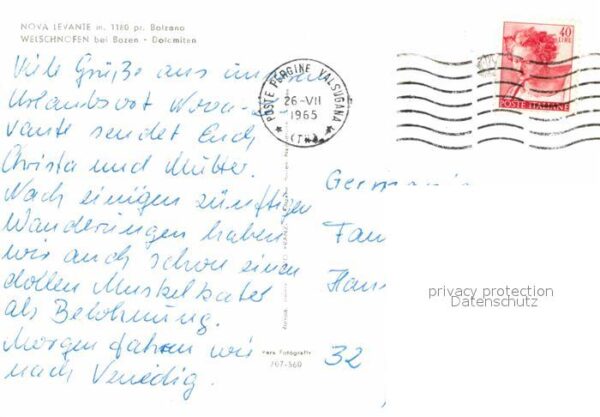 NOVA LEVANTE m. 1180 pr. Bolzano
WELSCHNOFEN bei Bozen - Dolomiten
Viele Grüße aus unserem
Urlaubsort Nova-Le-
vante sendet Euch
Christa und Mutter.
Nach einigen zünftigen
Wanderungen haben
wir auch schon einen
dollen Muskelkater
als Belohnung.
Morgen fahren wir
nach Venedig.
POSTE PERGINE VALSUGANA
26-VII
1965
(TN)
40
LIRE
POSTE ITALIANE
Germania
Fam
Hans
32
privacy protection
Datenschutz
Fotografie
707-560